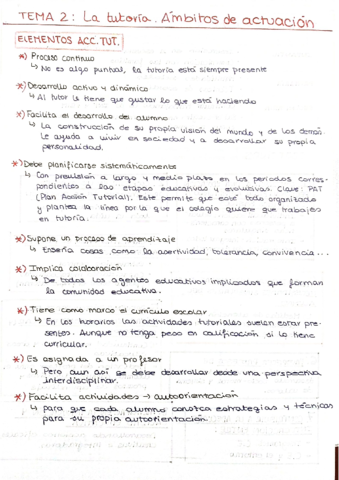 TEMA 2: La tutoría. Ámbitos de actuación
ELEMENTOS ACC. TUT.
*) Proceso continuo
↳ No es algo puntual, la tutoría está siempre presente
*) Desarrollo activo y dinámico
↳ Al tutor le tiene que gustar lo que está haciendo
*) Facilita el desarrollo de alumno
↳ La construcción de su propia visión del mundo y de los demás.
Le ayuda a vivir en sociedad y a desarrollar su propia
personalidad.
*) Debe planificarse sistemáticamente
↳ Con previsión a largo y medio plazo en los periodos corres-
pondientes a las etapas educativas y evolutivas. Clave: PAT
(Plan Acción Tutorial). Este permite que esté todo organizado
y plantea la línea por la que el colegio quiere que trabajes
en tutoría.
*) Supone un proceso de aprendizaje
↳ Enseña cosas como la asertividad, tolerancia, convivencia...
*) Implica colaboración
↳ De todos los agentes educativos implicados que forman
la comunidad educativa.
*) Tiene como marco el currículo escolar
↳ En los horarios las actividades tutoriales suelen estar pre-
sentes. Aunque no tenga peso en calificación si lo tiene
curricular.
*) Es asignada a un profesor
↳ Pero aun así se debe desarrollar desde una perspectiva
interdisciplinar.
*) Facilita actividades → autoorientación
↳ para que cada alumno conozca estrategias y técnicas
para su propia autoorientación.